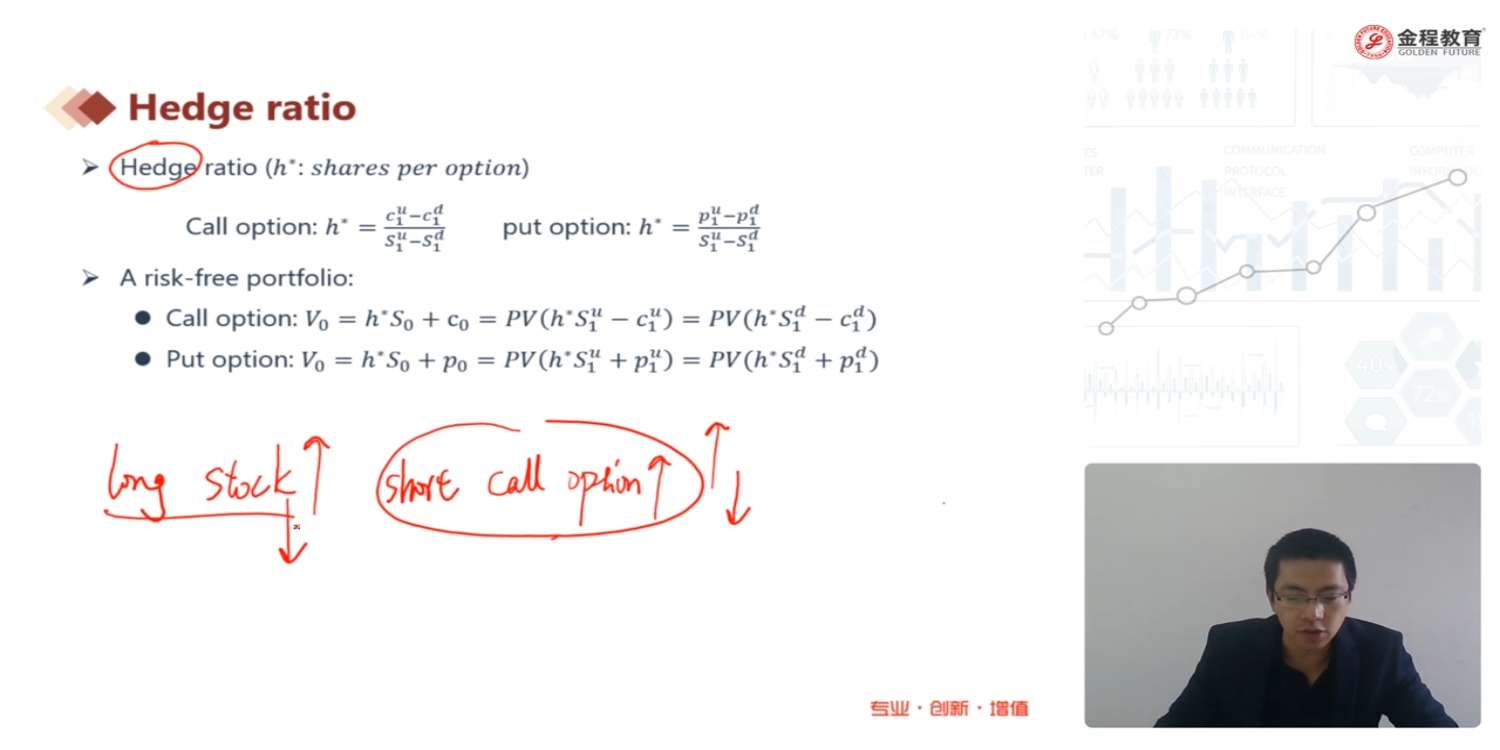 金程教育
GOLDEN FUTURE
Hedge ratio
➢ Hedge ratio (h*: shares per option)
Call option: h* = (c₁ᵘ−c₁ᵈ)/(S₁ᵘ−S₁ᵈ) put option: h* = (p₁ᵘ−p₁ᵈ)/(S₁ᵘ−S₁ᵈ)
➢ A risk-free portfolio:
● Call option: V₀ = h*S₀ + c₀ = PV(h*S₁ᵘ − c₁ᵘ) = PV(h*S₁ᵈ − c₁ᵈ)
● Put option: V₀ = h*S₀ + p₀ = PV(h*S₁ᵘ + p₁ᵘ) = PV(h*S₁ᵈ + p₁ᵈ)
long stock ↑ ↓ short call option ↑ ↑ ↓
专业·创新·增值
COMMUNICATION
PROTOCOL
INTERFACE
COMPUTER
40%
72%